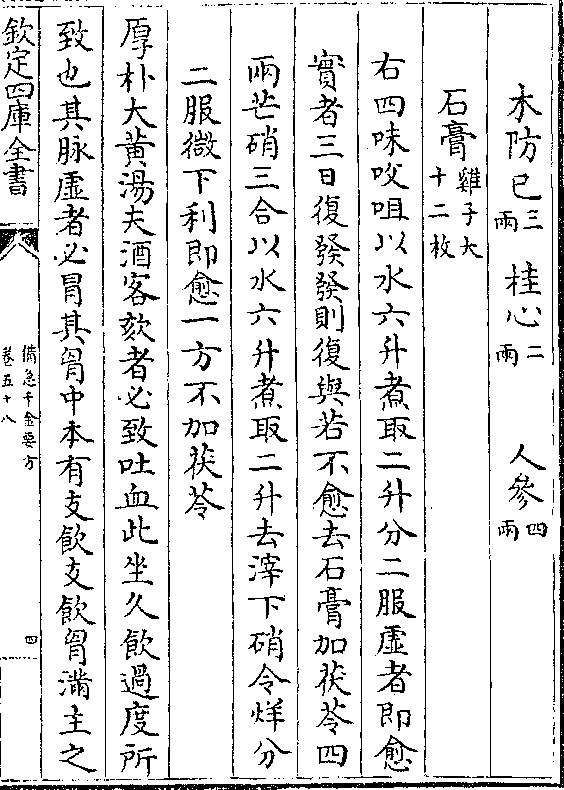 木防已三兩　桂心二兩　人參四兩
石膏雞子大十二枚
右四味㕮咀以水六升煮取二升分二服虛者即愈
實者三日復發發則復與若不愈去石膏加茯苓四
兩芒硝三合以水六升煮取二升去滓下硝令烊分
二服微下利即愈一方不加茯苓
厚朴大黃湯夫酒客欬者必致吐血此坐久飲過度所
致也其脉虛者必冒其胷中本有支飲支飲胷滿主之
欽定四庫全書
備急千金要方
卷五十八
四